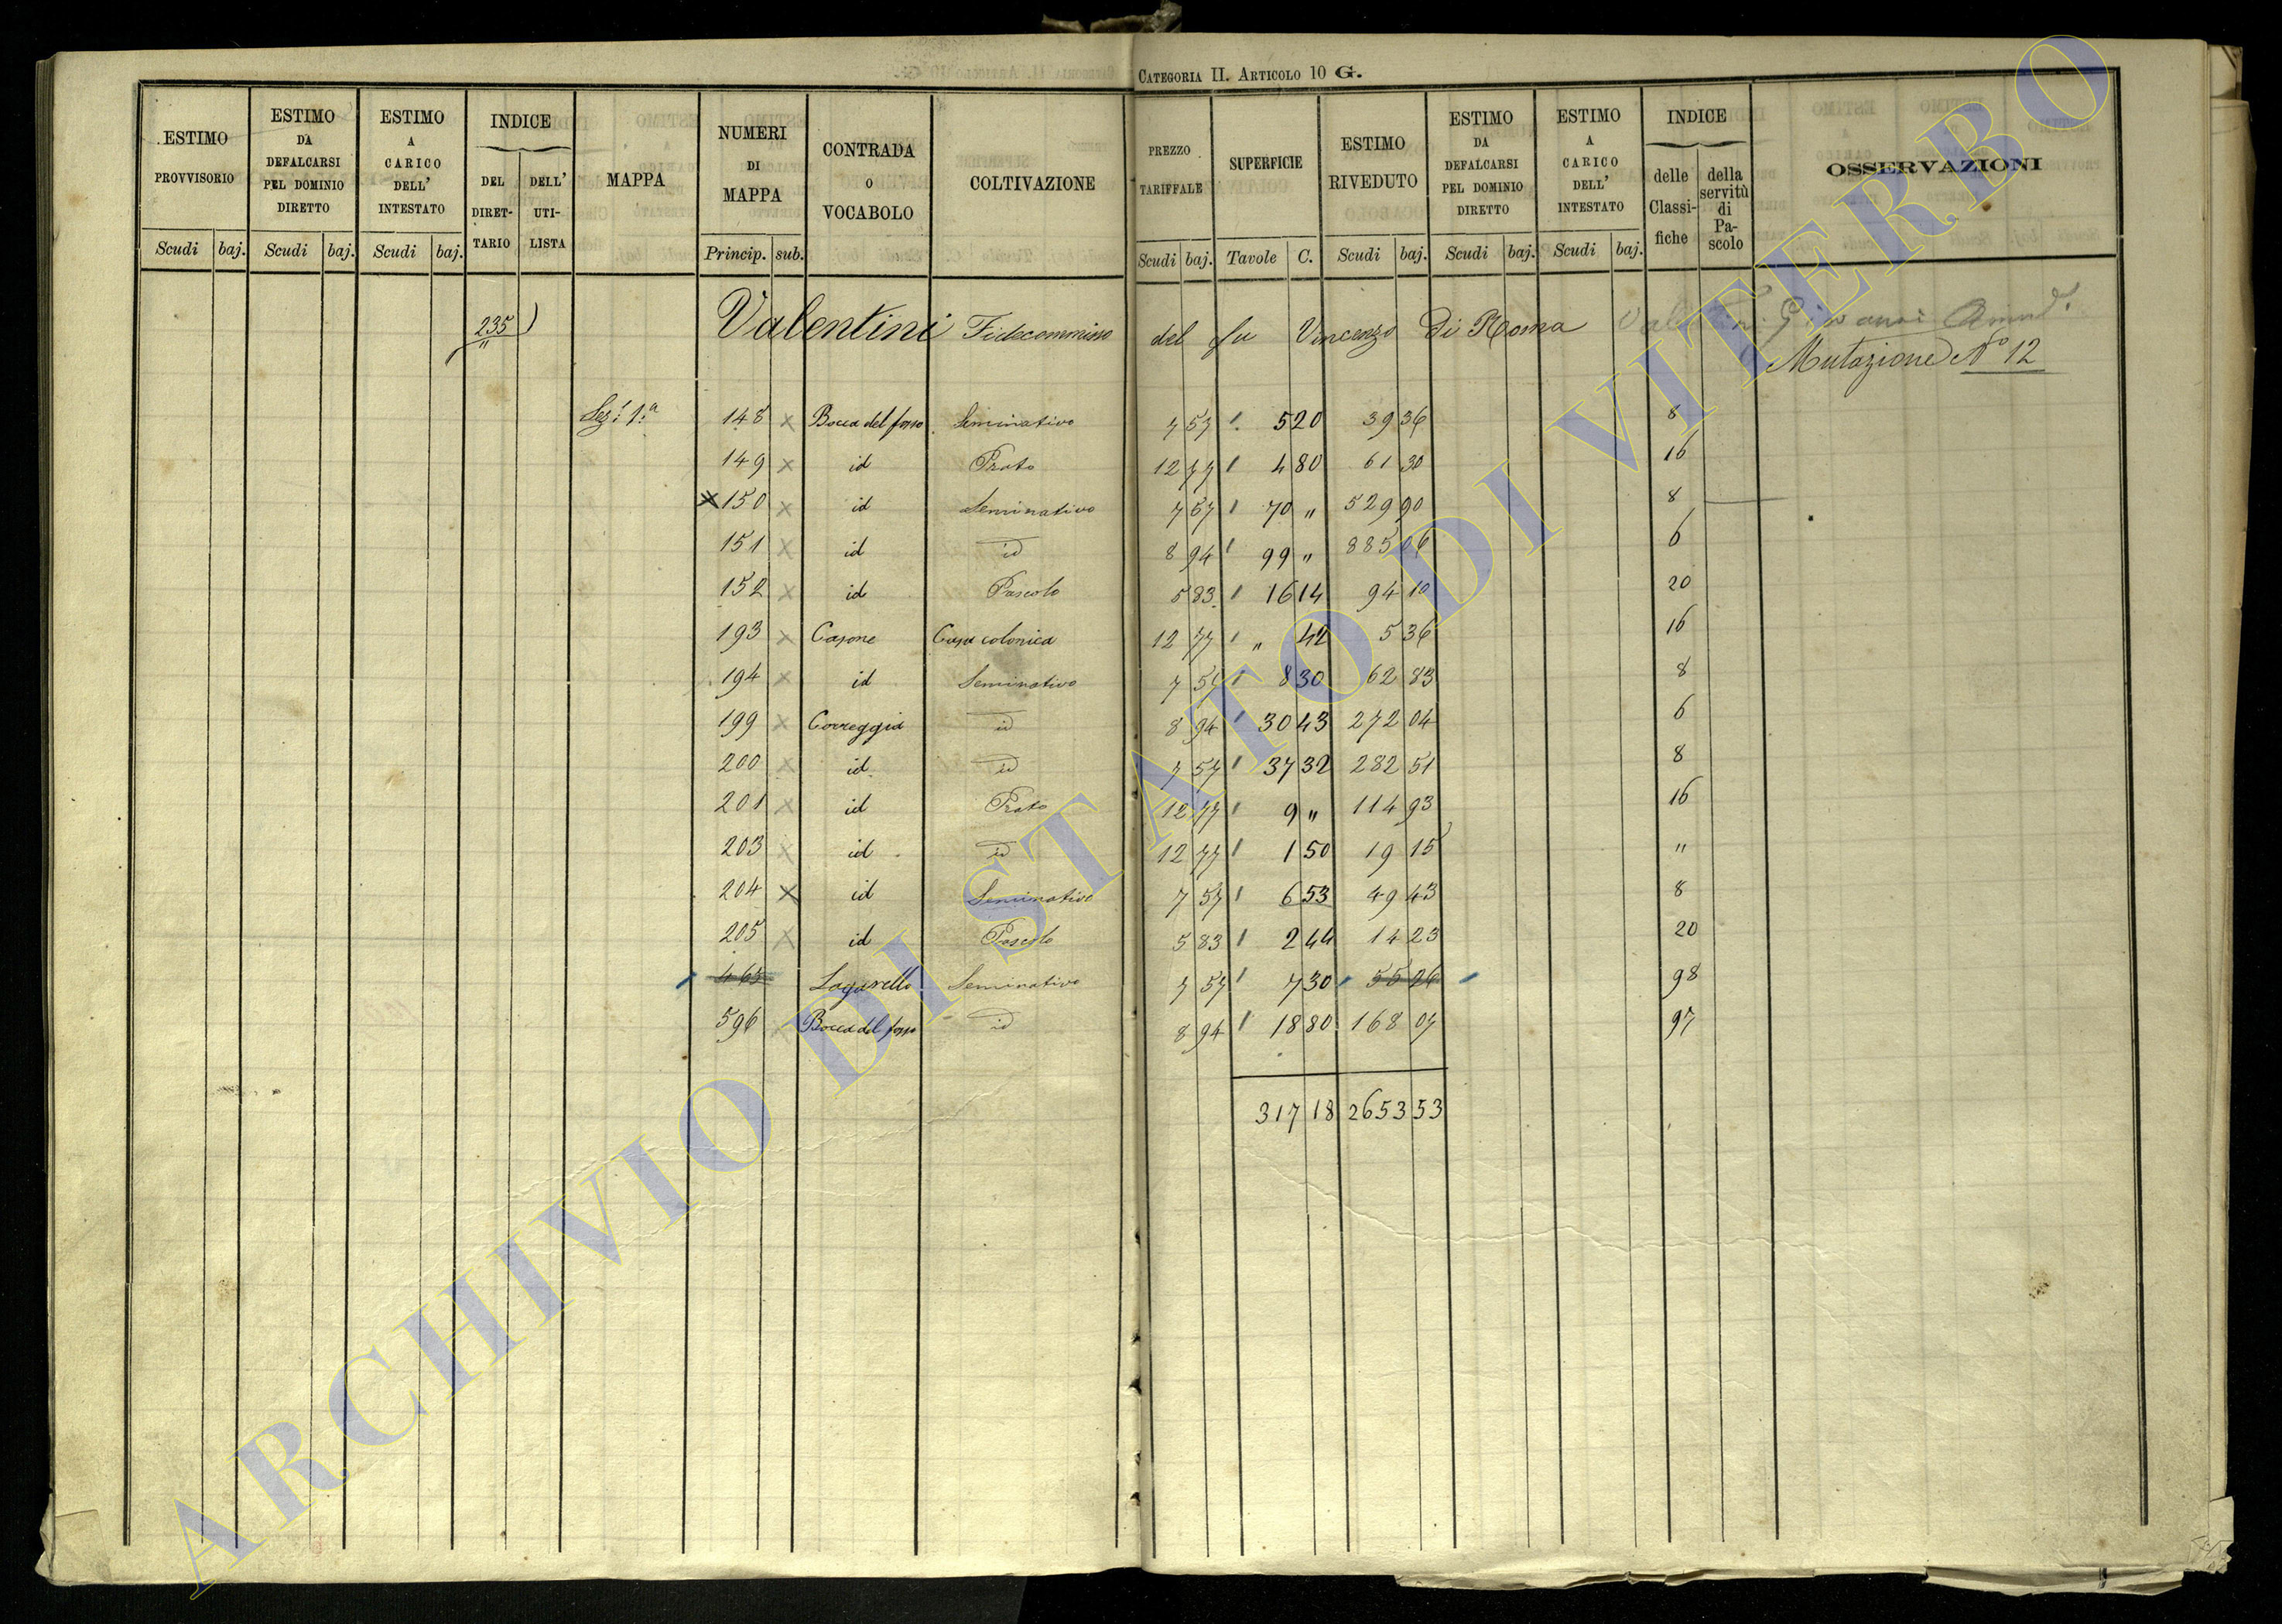 CATEGORIA II. ARTICOLO 10 G.
ESTIMO PROVVISORIO Scudi baj.
ESTIMO DA DEFALCARSI PEL DOMINIO DIRETTO Scudi baj.
ESTIMO A CARICO DELL' INTESTATO Scudi baj.
INDICE DEL DIRETTARIO DELL' UTILISTA
MAPPA
NUMERI DI MAPPA Princip. sub.
CONTRADA O VOCABOLO
COLTIVAZIONE
PREZZO TARIFFALE Scudi baj.
SUPERFICIE Tavole C.
ESTIMO RIVEDUTO Scudi baj.
ESTIMO DA DEFALCARSI PEL DOMINIO DIRETTO Scudi baj.
ESTIMO A CARICO DELL' INTESTATO Scudi baj.
INDICE delle Classifiche della servitù di Pascolo
OSSERVAZIONI
235 Valentini Fidecommisso del fu Vincenzo Di Roma Valentini Giovanni
Mutazione N° 12
Sez: 1:a 148 x Bocca del fosso Seminativo 7 57 5 20 39 36 8
149 x id Prato 12 77 4 80 61 30 16
x 150 x id Seminativo 7 57 70 " 529 90 8
151 x id id 8 94 99 " 885 06 6
152 x id Pascolo 5 83 16 14 94 10 20
193 x Casone Casa colonica 12 77 " 42 5 36 16
194 x id Seminativo 7 57 8 30 62 83 8
199 x Correggia id 8 94 30 43 272 04 6
200 x id id 7 57 37 32 282 51 8
201 x id Prato 12 77 9 " 114 93 16
203 x id id 12 77 1 50 19 15 "
204 x id Seminativo 7 57 6 53 49 43 8
205 x id Pascolo 5 83 2 44 14 23 20
465 Lagarello Seminativo 7 57 7 30 55 26 98
596 Bocca del fosso id 8 94 18 80 168 07 97
317 18 2653 53
ARCHIVIO DI STATO DI VITERBO